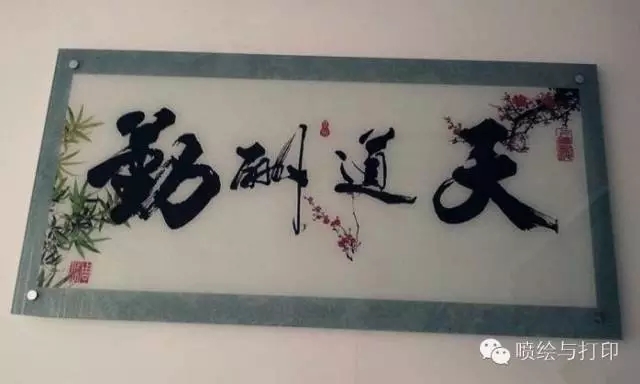 天道酬勤
喷绘与打印